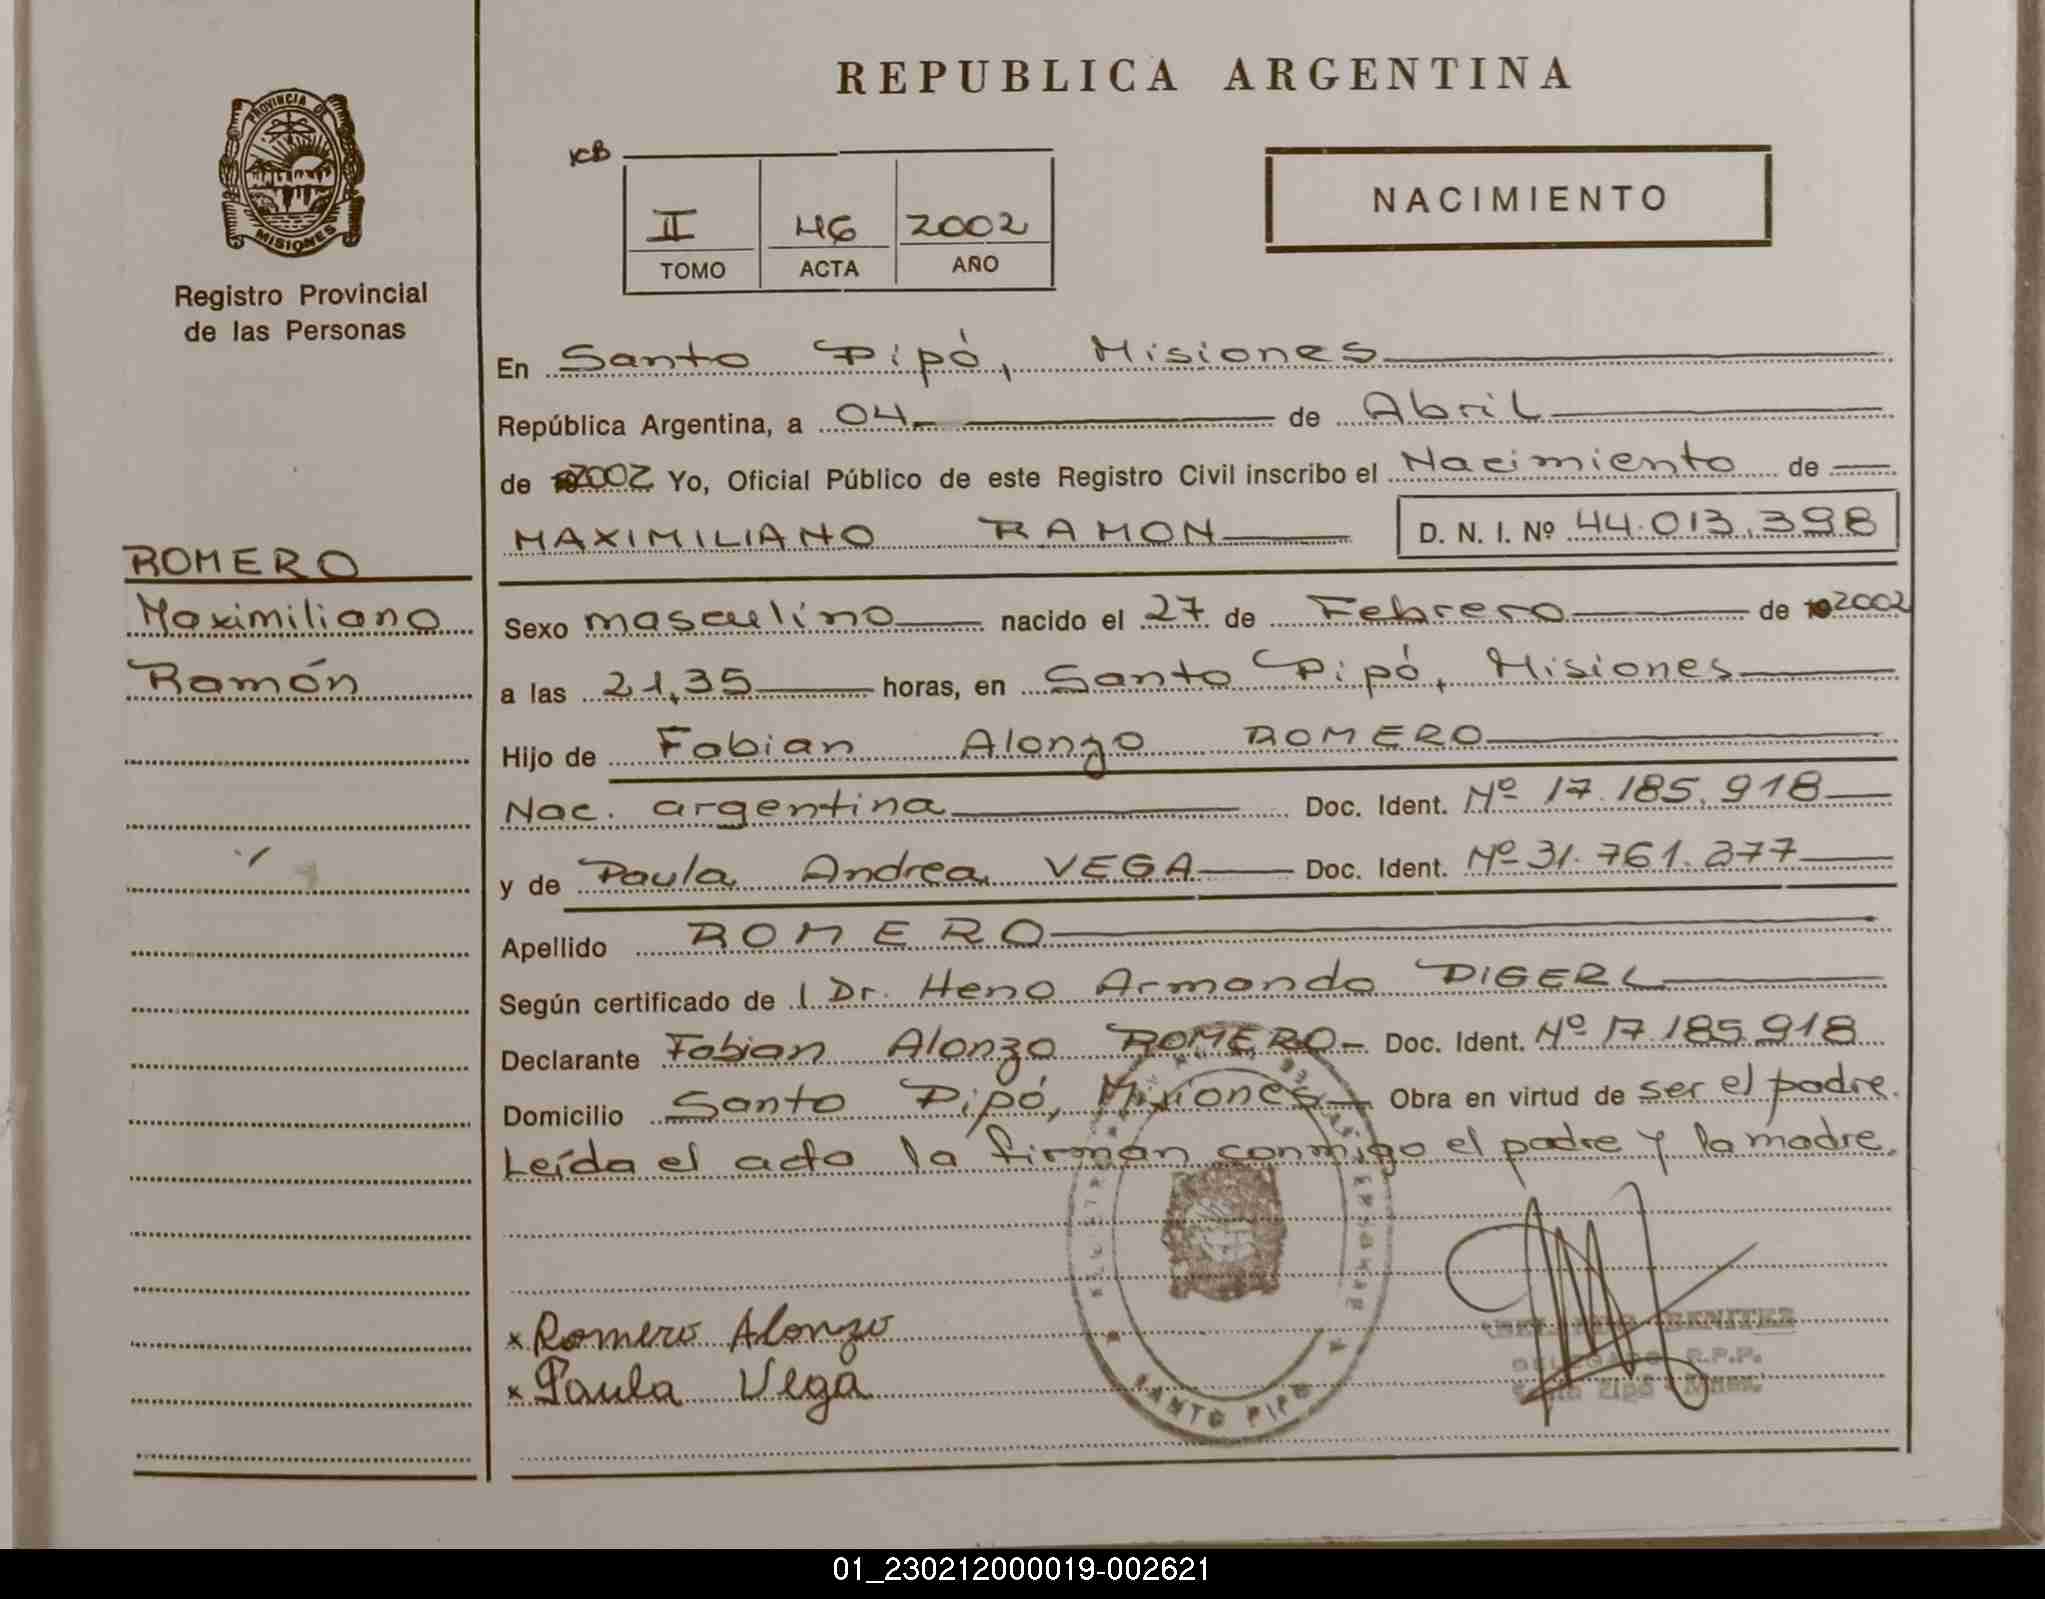 REPUBLICA ARGENTINA
PROVINCIA DE
MISIONES
Registro Provincial
de las Personas
KB
II 46 2002
TOMO ACTA AÑO
NACIMIENTO
ROMERO
Maximiliano
Ramón
En Santo Pipó, Misiones
República Argentina, a 04 de Abril
de 2002 Yo, Oficial Público de este Registro Civil inscribo el Nacimiento de
MAXIMILIANO RAMON D. N. I. Nº 44.013.398
Sexo masculino nacido el 27 de Febrero de 2002
a las 21,35 horas, en Santo Pipó, Misiones
Hijo de Fabian Alonzo ROMERO
Nac. argentina Doc. Ident. Nº 17.185.918
y de Paula Andrea VEGA Doc. Ident. Nº 31.761.277
Apellido ROMERO
Según certificado de Dr. Heno Armando DIGERL
Declarante Fabian Alonzo ROMERO Doc. Ident. Nº 17.185.918
Domicilio Santo Pipó, Misiones Obra en virtud de ser el padre.
Leída el acta la firman conmigo el padre y la madre.
x Romero Alonzo
x Paula Vega
SANTO PIPO
BENITEZ
DELEGADO R.P.P.
Santo Pipó - Mnes.
01_230212000019-002621